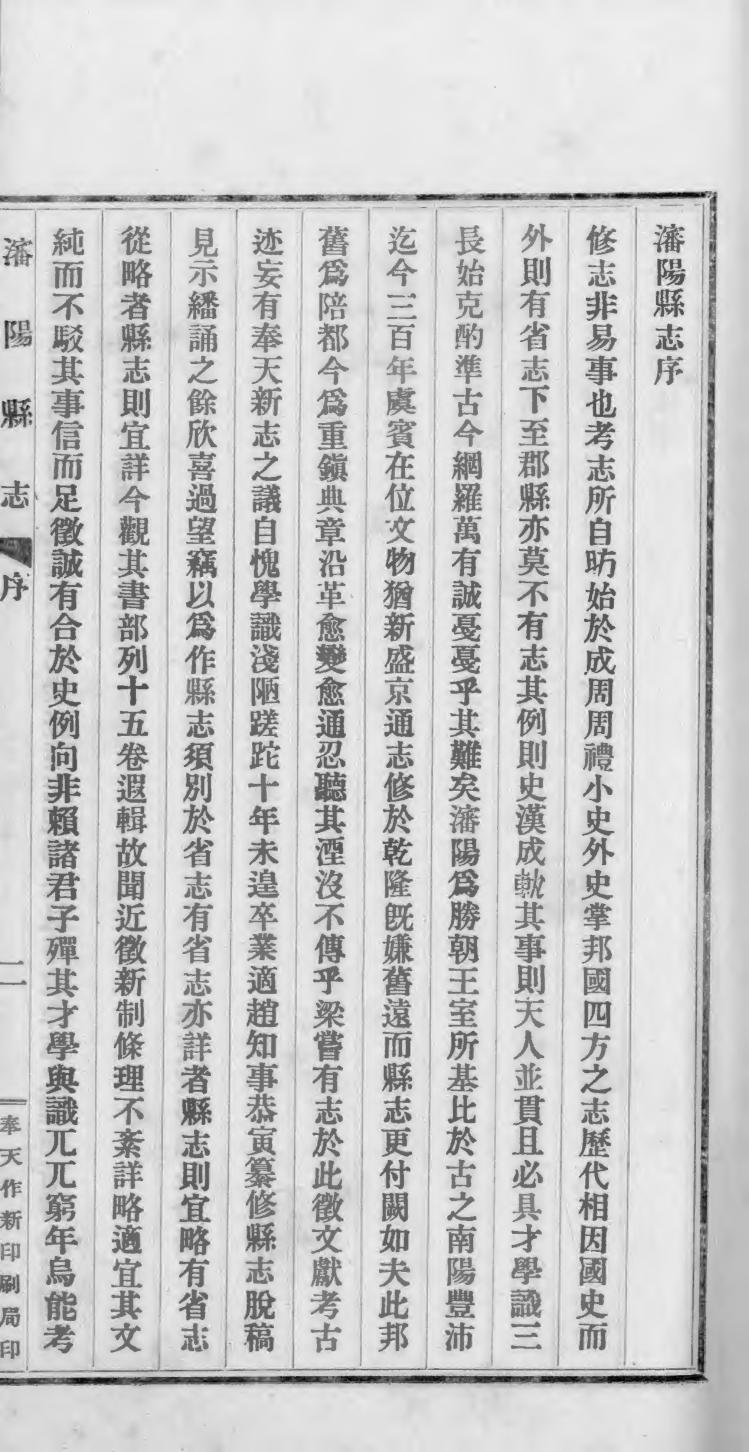 瀋陽縣志序
修志非易事也考志所自昉始於成周周禮小史外史掌邦國四方之志歷代相因國史而
外則有省志下至郡縣亦莫不有志其例則史漢成軌其事則天人並貫且必具才學識三
長始克酌準古今網羅萬有誠戞戞乎其難矣瀋陽爲勝朝王室所基比於古之南陽豐沛
迄今三百年虞賓在位文物猶新盛京通志修於乾隆旣嫌舊遠而縣志更付闕如夫此邦
舊爲陪都今爲重鎭典章沿革愈變愈通忍聽其湮沒不傳乎梁嘗有志於此徵文獻考古
迹妄有奉天新志之議自愧學識淺陋蹉跎十年未遑卒業適趙知事恭寅纂修縣志脫稿
見示繙誦之餘欣喜過望竊以爲作縣志須別於省志有省志亦詳者縣志則宜略有省志
從略者縣志則宜詳今觀其書部列十五卷遐輯故聞近徵新制條理不紊詳略適宜其文
純而不駁其事信而足徵誠有合於史例向非賴諸君子殫其才學與識兀兀窮年烏能考
瀋陽縣志 序 二 奉天作新印刷局印